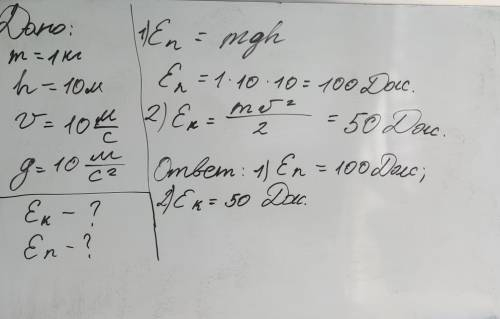 Дано:
m = 1 кг
h = 10 м
v = 10 м/с
g = 10 м/с²
Eк - ?
Eп - ?
1) Eп = mgh
Eп = 1·10·10 = 100 Дж.
2) Eк = mv²/2 = 50 Дж.
Ответ: 1) Eп = 100 Дж;
2) Eк = 50 Дж.